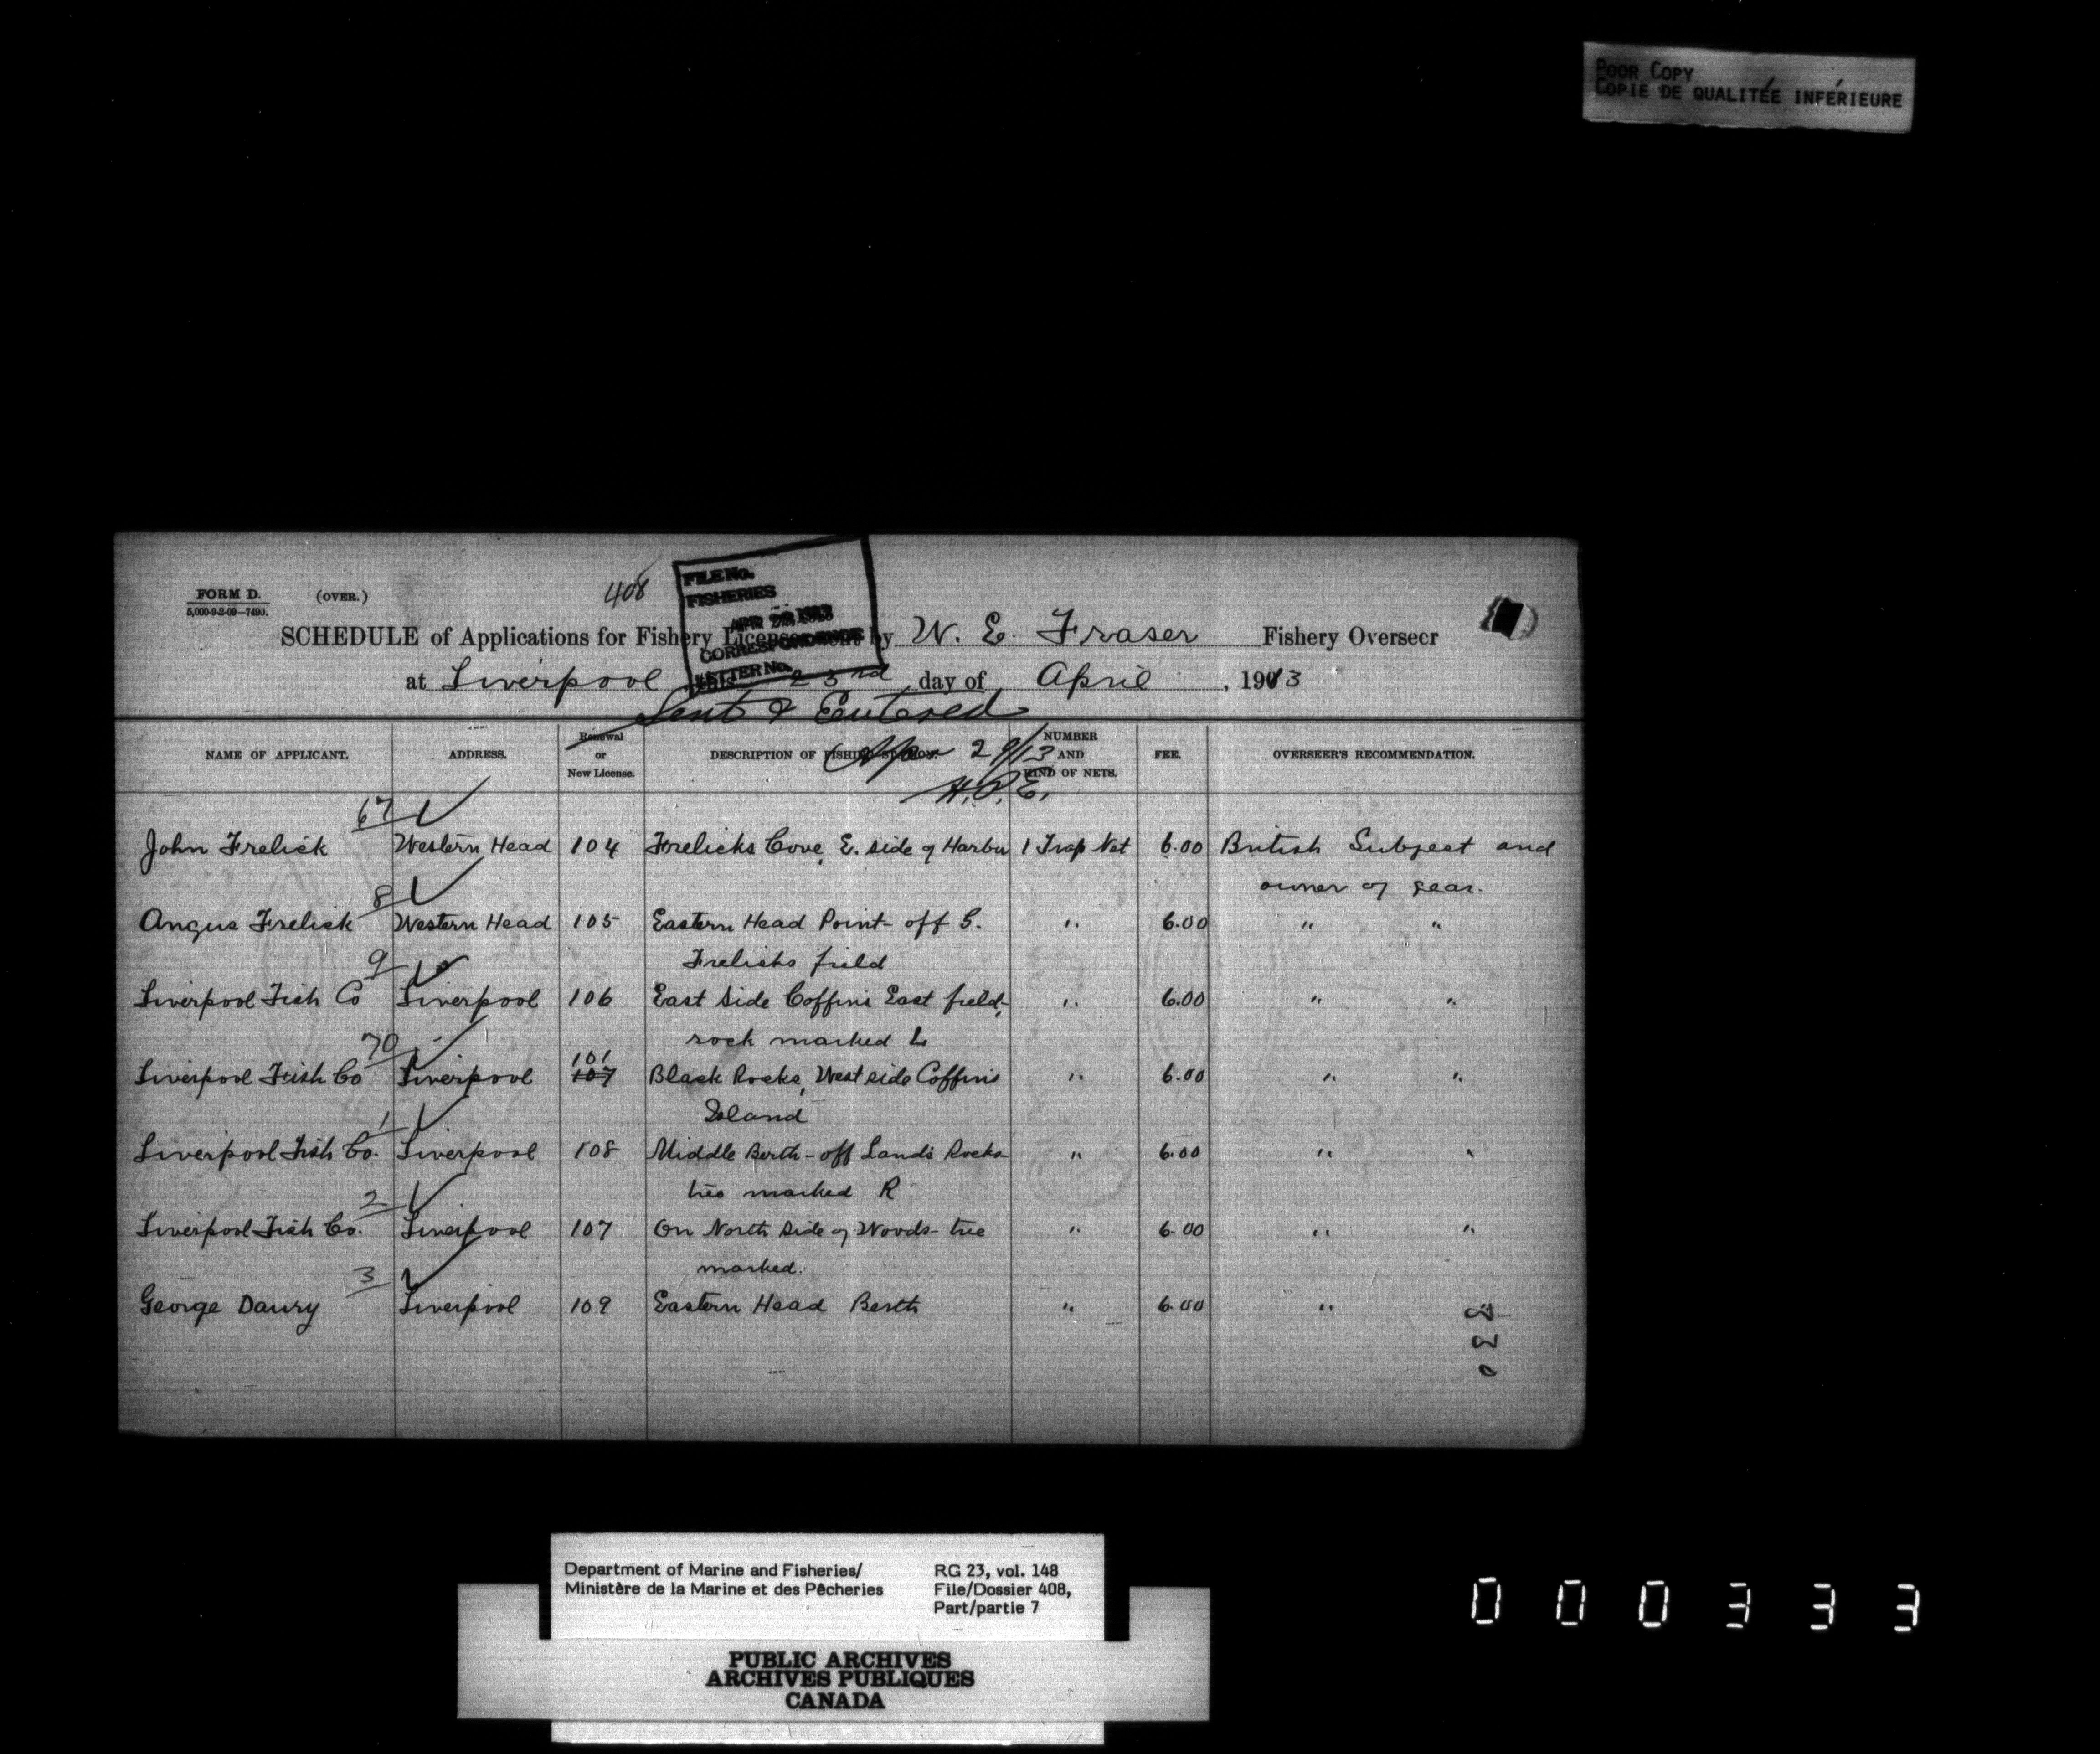 POOR COPY
COPIE DE QUALITÉE INFÉRIEURE
FORM D. (OVER.)
5,000-9-2-09—7490.
408
FILE No.
FISHERIES
APR 28 1913
CORRESPONDENCE
LETTER No.
SCHEDULE of Applications for Fishery Licenses sent by W. E. Fraser Fishery Overseer
at Liverpool this 23rd day of April, 1913
Sent & Entered
Apr 29/13
H.P.E.
NAME OF APPLICANT. ADDRESS. Renewal or New License. DESCRIPTION OF FISHING STATION. NUMBER AND KIND OF NETS. FEE. OVERSEER'S RECOMMENDATION.
67 ✓
John Frelick Western Head 104 Frelicks Cove, E. side of Harbor 1 Trap Net 6.00 British Subject and
owner of gear.
8 ✓
Angus Frelick Western Head 105 Eastern Head Point - off G. " 6.00 " "
Frelicks field
9 ✓
Liverpool Fish Co Liverpool 106 East Side Coffins East field, " 6.00 " "
rock marked L
70 ✓
101
Liverpool Fish Co Liverpool 107 Black Rocks, West side Coffins " 6.00 " "
Island
1 ✓
Liverpool Fish Co. Liverpool 108 Middle Berth - off Lands Rocks " 6.00 " "
tree marked R
2 ✓
Liverpool Fish Co. Liverpool 107 On North Side of Woods - tree " 6.00 " "
marked.
3 ✓
George Daury Liverpool 109 Eastern Head Berth " 6.00 "
330
Department of Marine and Fisheries/
Ministère de la Marine et des Pêcheries
RG 23, vol. 148
File/Dossier 408,
Part/partie 7
PUBLIC ARCHIVES
ARCHIVES PUBLIQUES
CANADA
000333